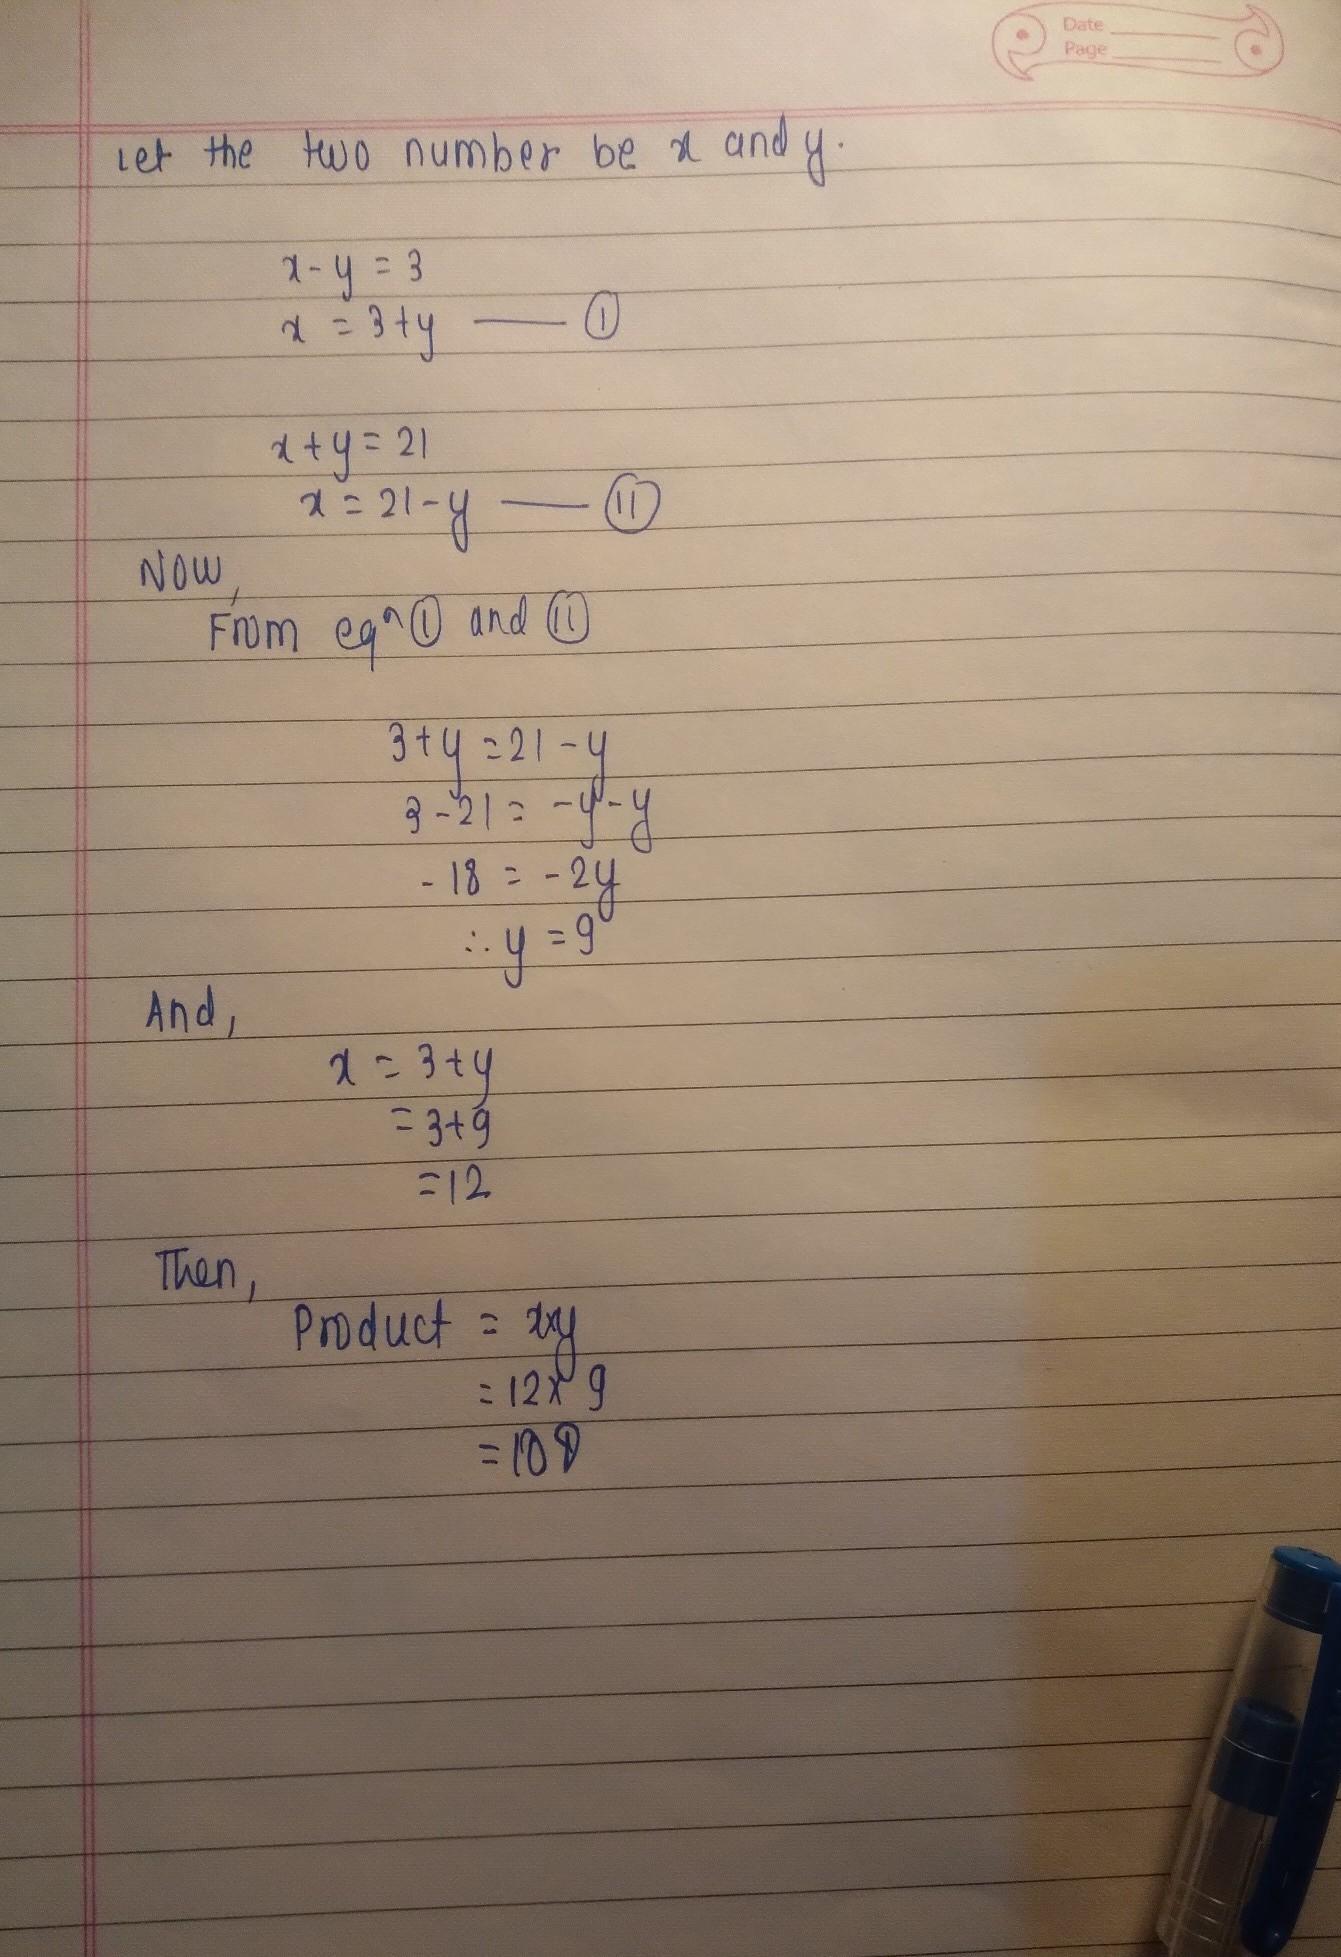 Date
Page
Let the two number be x and y.
x - y = 3
x = 3+y —— ①
x + y = 21
x = 21 - y —— ⑪
Now,
From eqⁿ ① and ⑪
3+y = 21 - y
3 - 21 = -y - y
- 18 = - 2y
∴ y = 9
And,
x = 3+y
= 3+9
= 12
Then,
Product = x×y
= 12 x 9
= 108